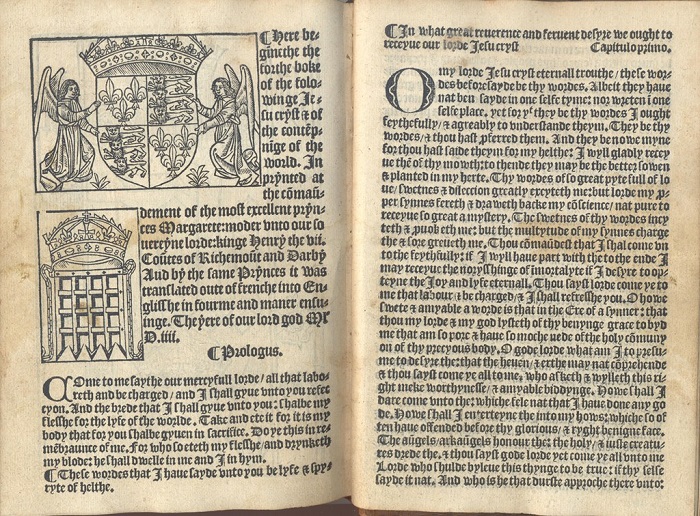 ¶Here be-
gīnethe the
forthe boke
of the folo-
winge Je-
su cryst & of
the contēp-
nige of the
world. In
prynted at
the cōmāū-
dement of the most excellent pryn-
ces Margarete:moder vnto our so
uereyne lorde:kinge Henry the vii.
Coūtes of Richemount and Darby
And by the same Prynces it was
translated oute of frenche into En-
glisshe in fourme and maner ensu-
inge. The yere of our lord god Mˡ
D.iiii.
¶Prologus.
COme to me saythe our mercyfull lorde/ all that labo-
reth and be charged/ and I shall gyue vnto you refec
cyon. And the brede that I shall gyue vnto you: shalbe my
flesshe for the lyfe of the worlde. Take and ete it for it is my
body that for you shalbe gyuen in sacrifice. Do ye this in re-
mēbraunce of me. For who so eteth my flesshe and drynketh
my blode: he shall dwelle in me and I in hym.
¶These wordes that I haue sayde vnto you be lyfe & spy-
ryte of helthe.
¶In what great reuerence and feruent desyre we ought to
receyue our lorde Jesu cryst Capitulo primo.
O my lorde Jesu cryst eternall trouthe/ these wor-
des beforesayde be thy wordes. Albeit they haue
nat ben sayde in one selfe tyme: nor wreten ī one
selfe place. yet for yͭ they be thy wordes I ought
feythefully/ & agreably to vnderstande theym. They be thy
wordes/ & thou hast pferred them. And they be nowe myne
for thou hast saide theym for my helthe: I wyll gladly recey
ue thē of thy mowth: to thende they may be the better sowen
& planted in my herte. Thy wordes of so great pyte full of lo
ue/ swetnes & dileccion greatly excyteth me: but lorde my p-
per synnes fereth & draweth backe my cōscience/ nat pure to
receyue so great a mystery. The swetnes of thy wordes incy
teth & puoketh me: but the multytude of my synnes charge
the & sore greueth me. Thou cōmaūdest that I shal come vn
to the feythfully: if I wyll haue part with the to the ende I
may receyue the norysshinge of imortalyte if I desyre to op-
teyne the Joy and lyfe eternall. Thou sayst lorde come ye to
me that labour/ & be charged/ & I shall refresshe you. O howe
swete & amyable a worde is that in the Ere of a synner: that
thou my lorde & my god lysteth of thy benynge grace to byd
me that am so pore & haue so moche nede of thy holy cōmuny
on of thy precyous body. O gode lorde what am I to presu-
me to desyre the: that the heuen/ & erthe may nat cōprehende
& thou sayst come ye all to me, who asketh & wylleth this ry-
ght meke worthynesse/ & amyable biddynge. Howe shall I
dare come vnto the: whiche fele nat that I haue done any go
de. Howe shall I enterteyne the into my hows: whiche so of
ten haue offended before thy glorious/ & ryght benigne face.
The aūgels/ arkaūgels honour the: the holy/ & iuste creatu-
res drede the, & thou sayst gode lorde yet come ye all vnto me
Lorde who shulde byleue this thynge to be true: if thy selfe
sayde it nat. And who is he that durste approche there vnto: